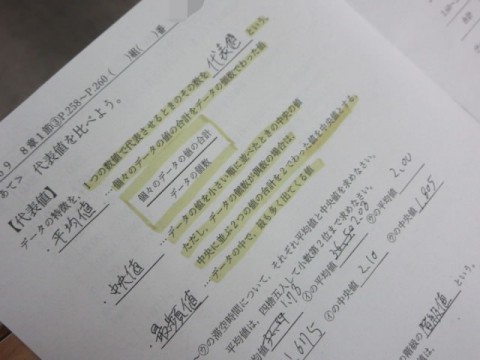 9 8章1節③P258~P260 ( )組( )番
めあて> 代表値を比べよう。
【代表値】
データの特徴を、1つの数値で代表させるときのその数を 代表値 という。
・平均値 …個々のデータの値の合計をデータの個数でわった値
個々のデータの値の合計
データの個数
・中央値 …データの値を小さい順に並べたときの中央の値
ただし、データの個数が偶数の場合は、
中央に並ぶ2つの値の合計を2でわった値を中央値とする。
・最頻値 …データの中で、最も多く出てくる値
の滞空時間について、それぞれ平均値と中央値を求めなさい。
平均値は、四捨五入して小数第2位まで求めなさい。
の平均値 2.08
の平均値 2.00
1.78 の平均値
の中央値 2.10
の中央値 1.805
という。